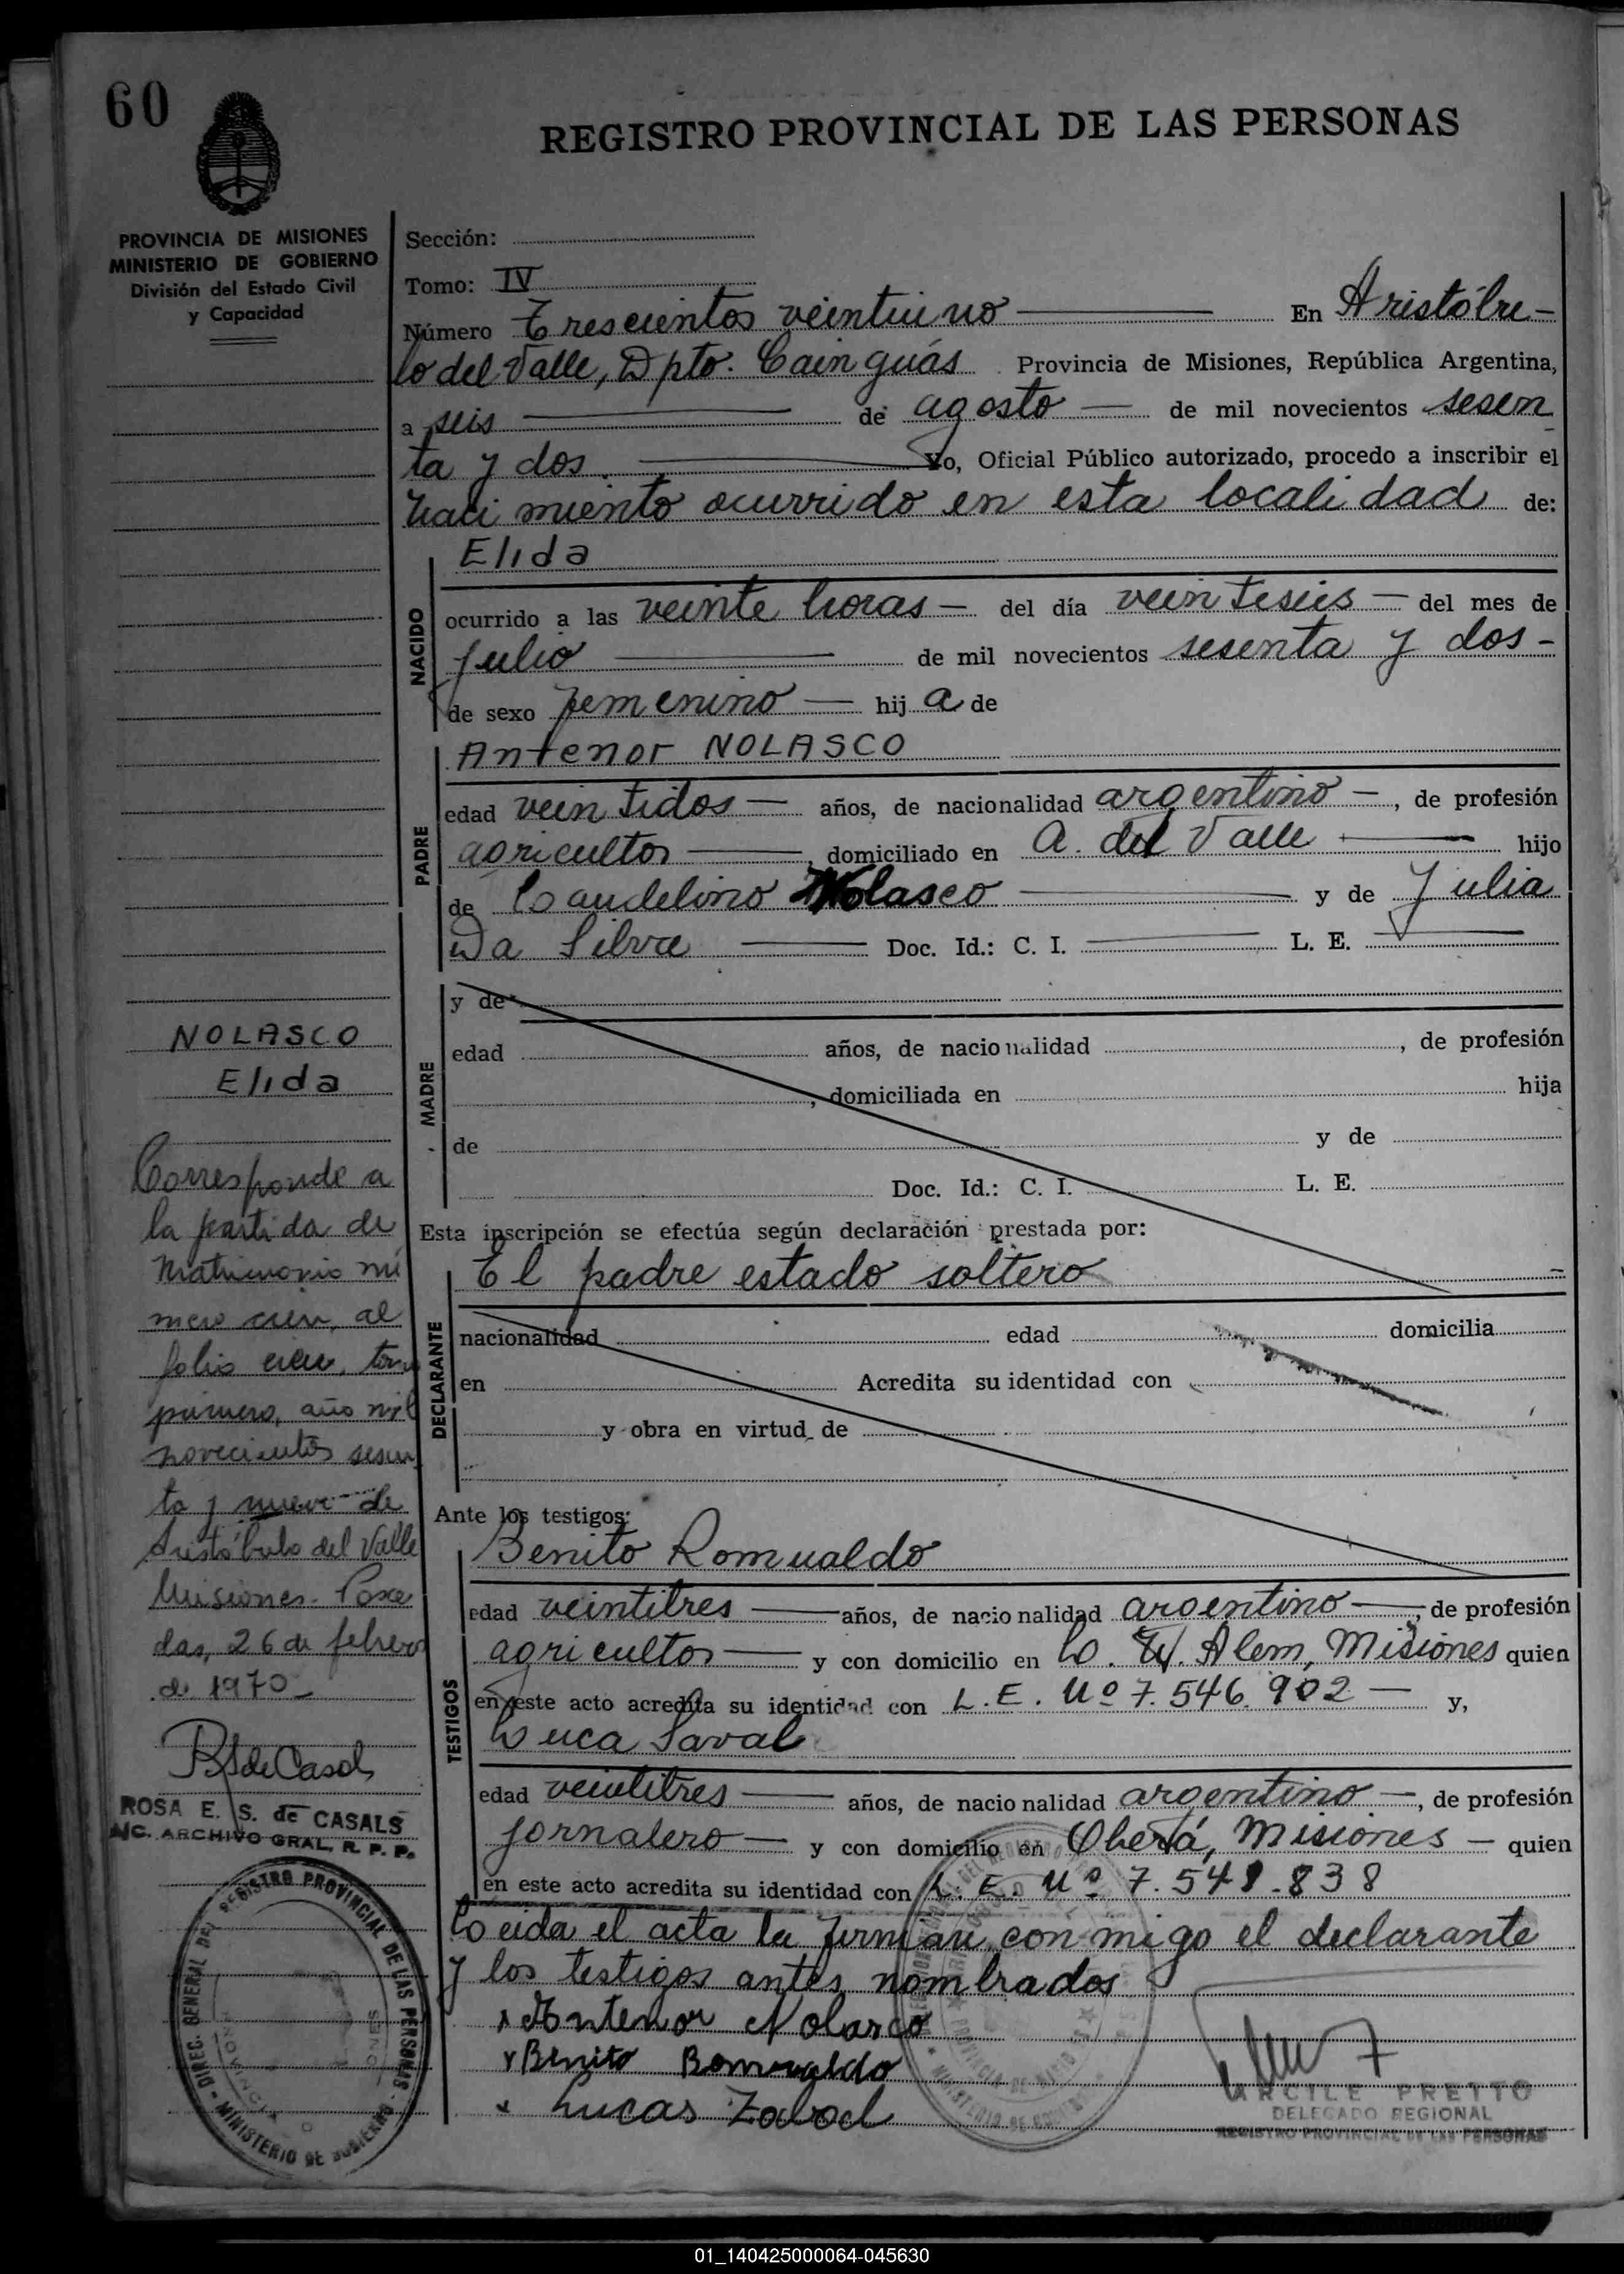 60
REGISTRO PROVINCIAL DE LAS PERSONAS
PROVINCIA DE MISIONES
MINISTERIO DE GOBIERNO
División del Estado Civil
y Capacidad
Sección:
Tomo: IV
Número Trescientos veintiuno En Aristóbu-
lo del Valle, Dpto. Cainguás Provincia de Misiones, República Argentina,
a seis de agosto de mil novecientos sesen
ta y dos Yo, Oficial Público autorizado, procedo a inscribir el
naci miento ocurrido en esta localidad de:
Elida
NACIDO
ocurrido a las veinte horas - del día veintiseis - del mes de
julio de mil novecientos sesenta y dos -
de sexo femenino - hij a de
Antenor NOLASCO
PADRE
edad veintidos - años, de nacionalidad argentino -, de profesión
agricultor, domiciliado en A. del Valle hijo
de Candelino Nolasco y de Julia
Da Silva Doc. Id.: C. I. L. E.
MADRE
y de
edad años, de nacionalidad , de profesión
, domiciliada en hija
de y de
Doc. Id.: C. I. L. E.
Esta inscripción se efectúa según declaración prestada por:
El padre estado soltero
DECLARANTE
nacionalidad edad domicilia
en Acredita su identidad con
y obra en virtud de
Ante los testigos:
Benito Romualdo
TESTIGOS
edad veintitres años, de nacionalidad argentino, de profesión
agricultor y con domicilio en L. N. Alem, Misiones quien
en este acto acredita su identidad con L. E. Nº 7.546.902 - y,
Luca Saval
edad veintitres años, de nacionalidad argentino -, de profesión
jornalero - y con domicilio en Oberá, Misiones - quien
en este acto acredita su identidad con L. E. Nº 7.541.838
Leida el acta la firman con migo el declarante
y los testigos antes nombrados
x Antenor Nolasco
x Benito Romualdo
x Lucas Zabal
ARCILE PRETTO
DELEGADO REGIONAL
REGISTRO PROVINCIAL DE LAS PERSONAS
NOLASCO
Elida
Corresponde a
la partida de
Matrimonio nú
mero cien, al
folio cien, tomo
primero, año mil
novecientos sesen
ta y nueve de
Aristóbulo del Valle
Misiones. Posa
das, 26 de febrero
de 1970 -
ROSA E. S. de CASALS
A/C. ARCHIVO GRAL. R. P. P.
DIREC. GENERAL DEL REGISTRO PROVINCIAL DE LAS PERSONAS - MINISTERIO DE GOBIERNO
01_140425000064-045630